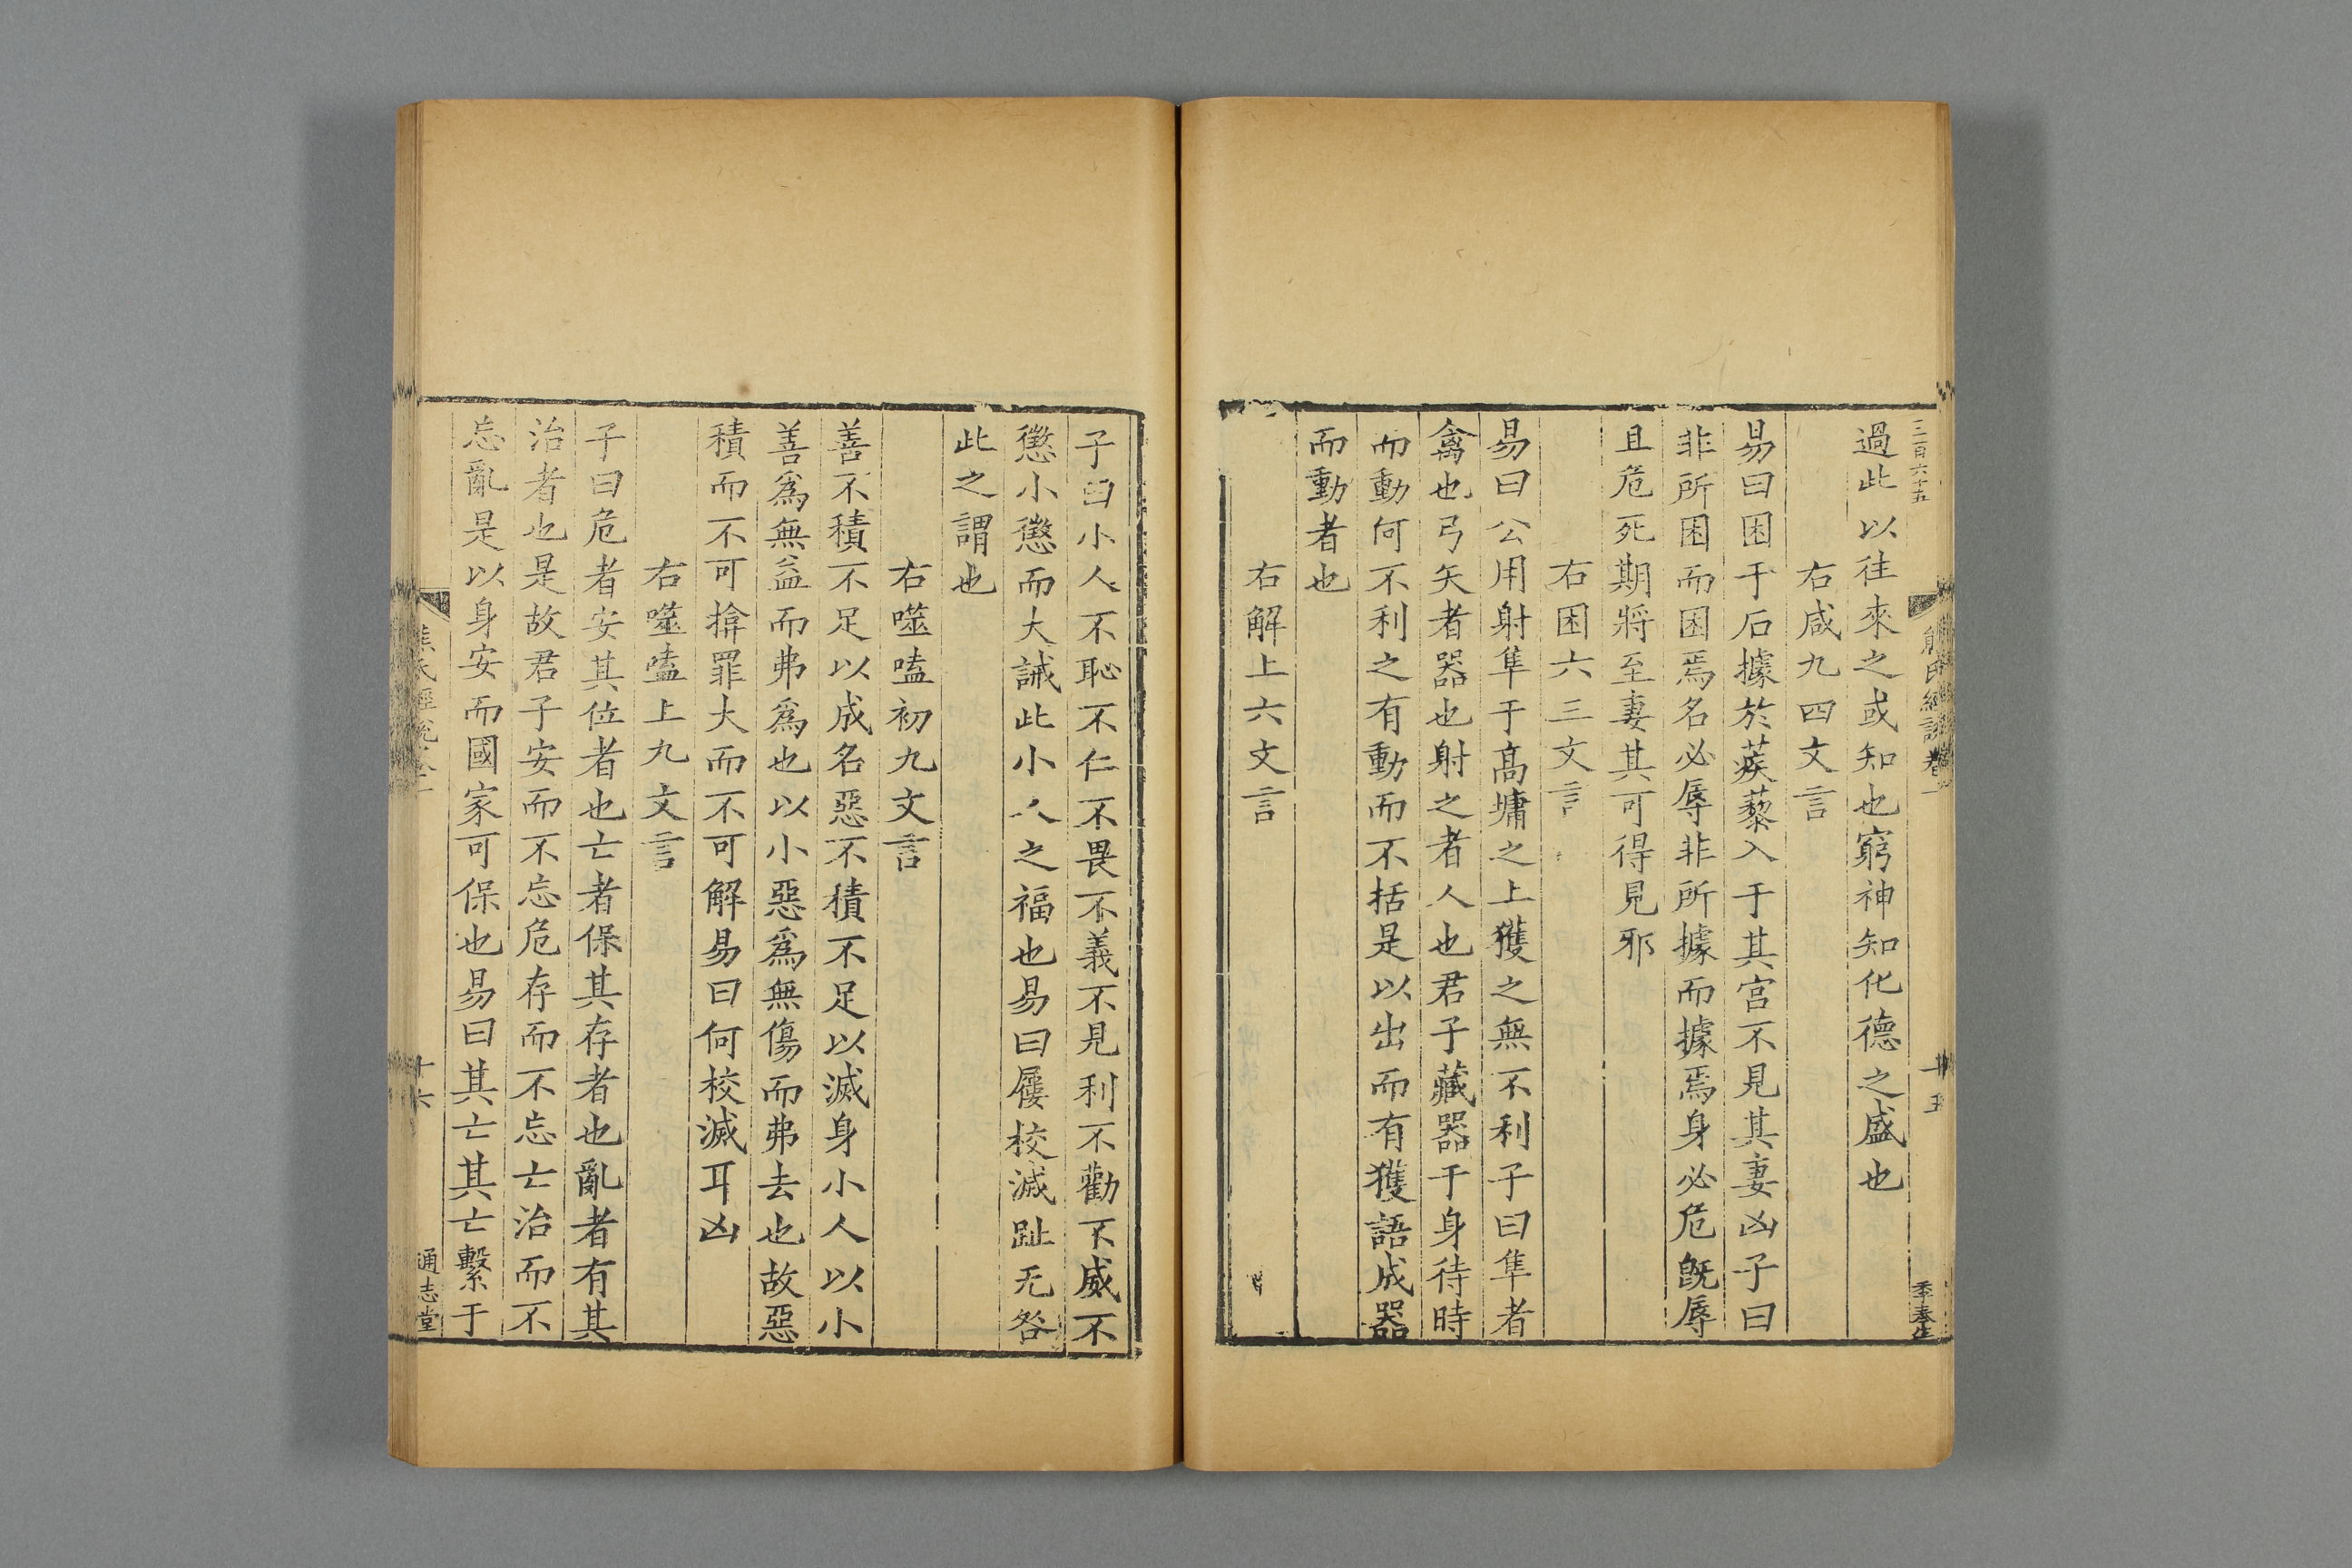 三百六十五
過此以徃來之或知也窮神知化德之盛也
右咸九四文言
易曰困于石據於蒺藜入于其宫不見其妻凶子曰
非所困而困焉名必辱非所據而據焉身必危旣辱
且危死期將至妻其可得見邪
右困六三文言
易曰公用射隼于高墉之上獲之無不利子曰隼者
禽也弓矢者器也射之者人也君子藏器于身待時
而動何不利之有動而不括是以出而有獲語成器
而動者也
右解上六文言
子曰小人不恥不仁不畏不義不見利不勸不威不
懲小懲而大誡此小人之福也易曰屨校滅趾无咎
此之謂也
右噬嗑初九文言
善不積不足以成名惡不積不足以滅身小人以小
善爲無益而弗爲也以小惡爲無傷而弗去也故惡
積而不可揜罪大而不可解易曰何校滅耳凶
右噬嗑上九文言
子曰危者安其位者也亡者保其存者也亂者有其
治者也是故君子安而不忘危存而不忘亡治而不
忘亂是以身安而國家可保也易曰其亡其亡繫于
熊氏經說卷一
十六
通志堂